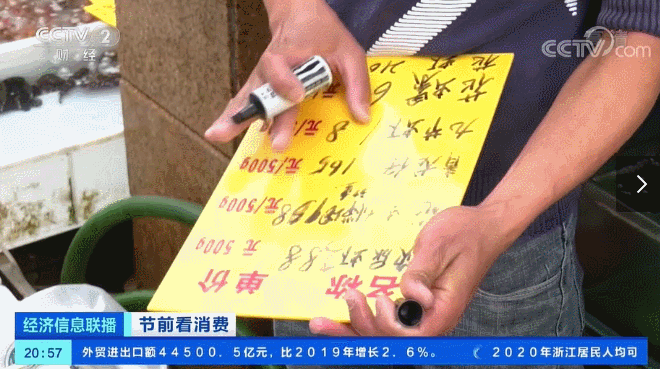 CCTV 2
财经
CCTV.com
名称 单价
尿虾 88 元/500g
元/500g
青龙仔 165 元/500g
九节虾 元
花螺 元
花虾 210
经济信息联播 节前看消费
20:57 外贸进出口额44500.5亿元，比2019年增长2.6%。 2020年浙江居民人均可